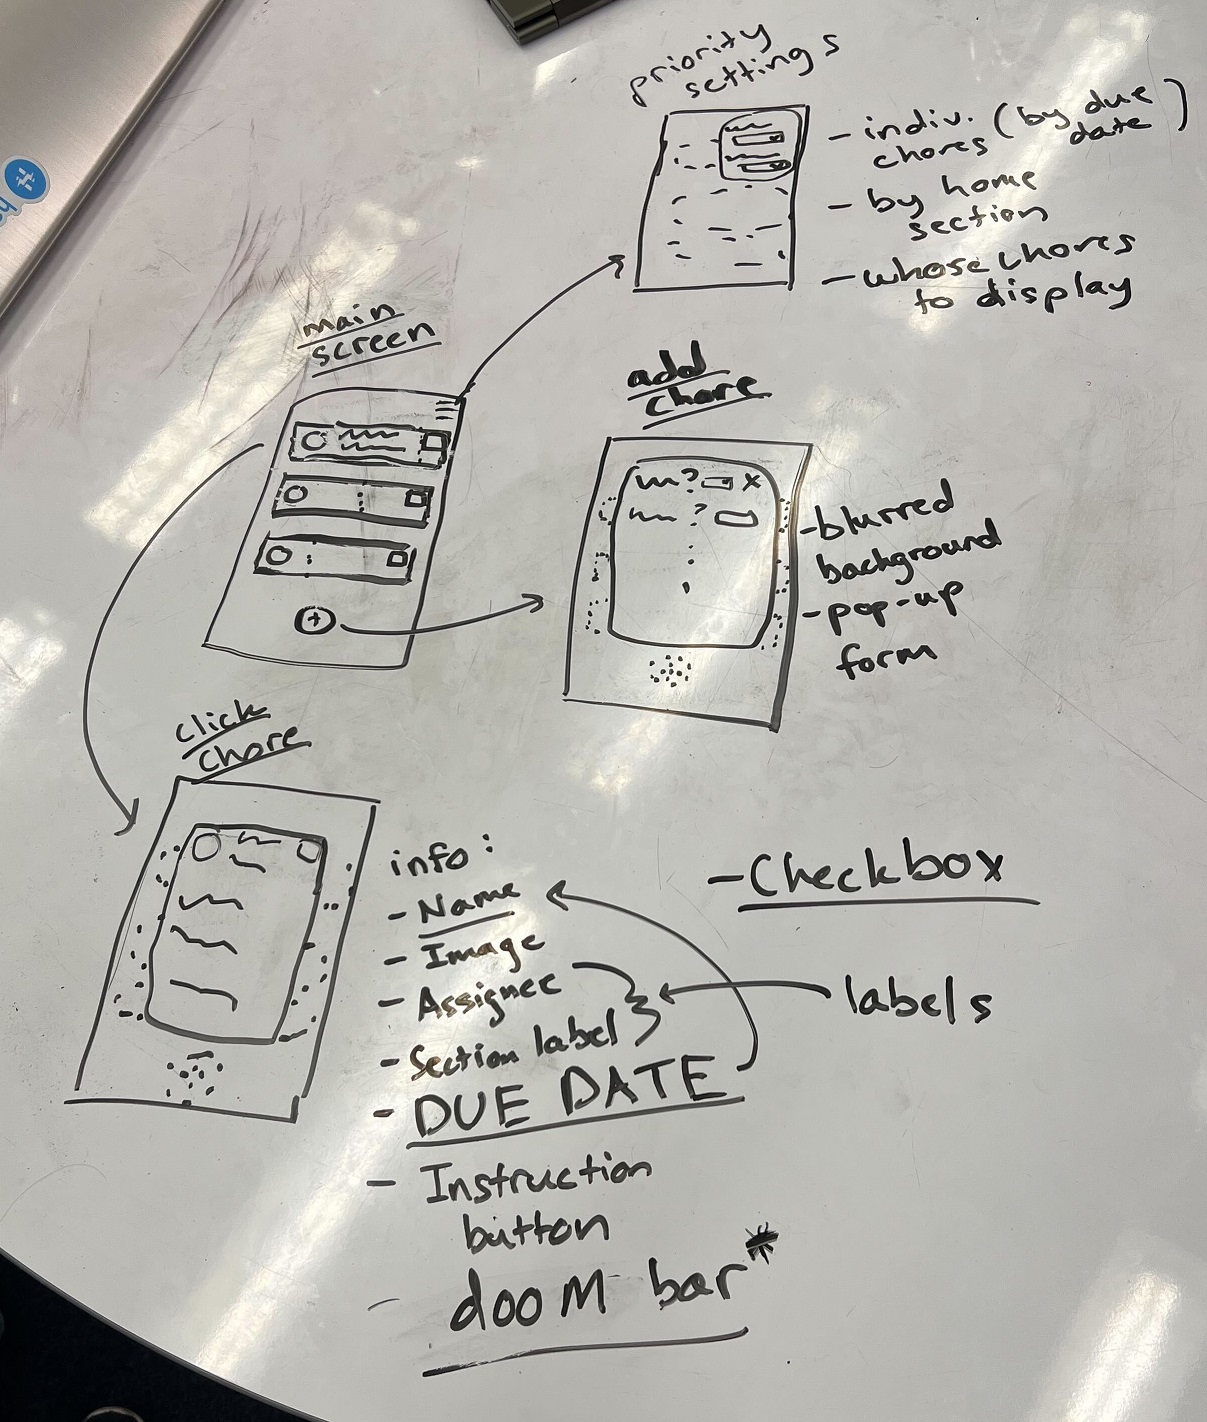 priority
settings
- indiv. (by due
chores date)
- by home
section
- whose chores
to display
main
screen
add
chore
? x
?
- blurred
background
- pop-up
form
click
chore
info:
- Name
- Image
- Assignee
- Section label
- DUE DATE
- Instruction
button
- dooM bar*
- Checkbox
labels